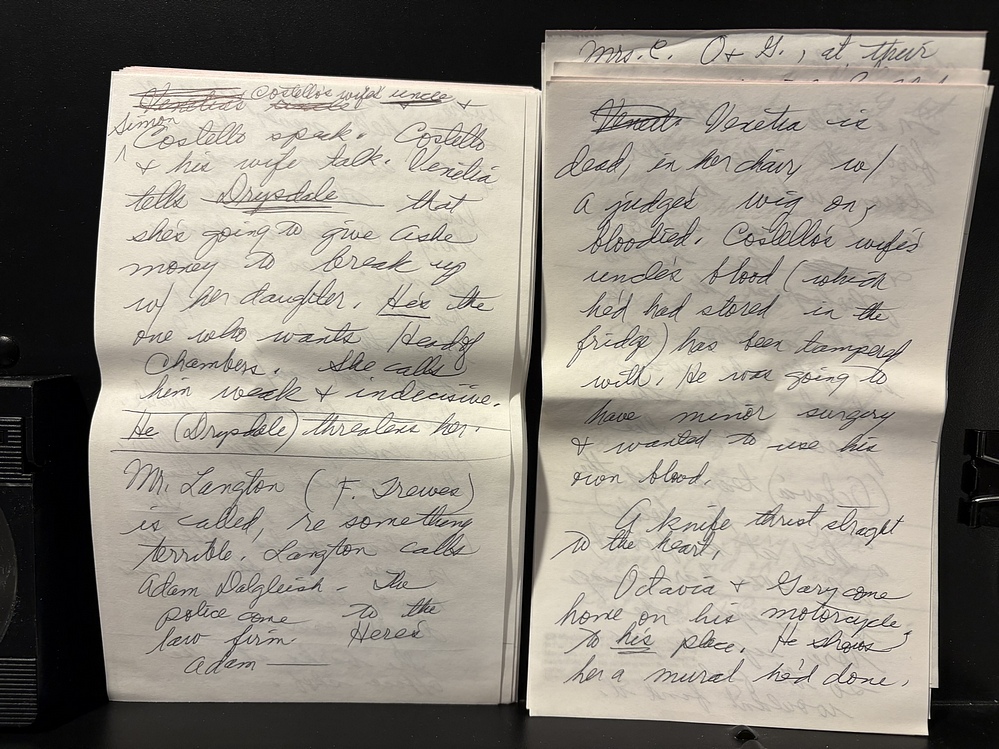 Costello's wife's uncle &
Simon
Costello speak. Costello
& his wife talk. Venetia
tells Drysdale that
she's going to give Ashe
money to break up
w/ her daughter. He's the
one who wants Head of
Chambers. She calls
him weak & indecisive.
He (Drysdale) threatens her.
Mr. Langton (F. Trewes)
is called, re something
terrible. Langton calls
Adam Dalgleish - The
police come to the
law firm. Here's
Adam —
Mrs. C. O + G., at their
Venetia is
dead, in her chair, w/
a judge's wig on,
bloodied. Costello's wife's
uncle's blood (which
he'd had stored in the
fridge) has been tampered
with. He was going to
have minor surgery
& wanted to use his
own blood.
A knife thrust straght
to the heart.
Octavia & Gary come
home on his motorcycle,
to his place. He shows
her a mural he'd done.